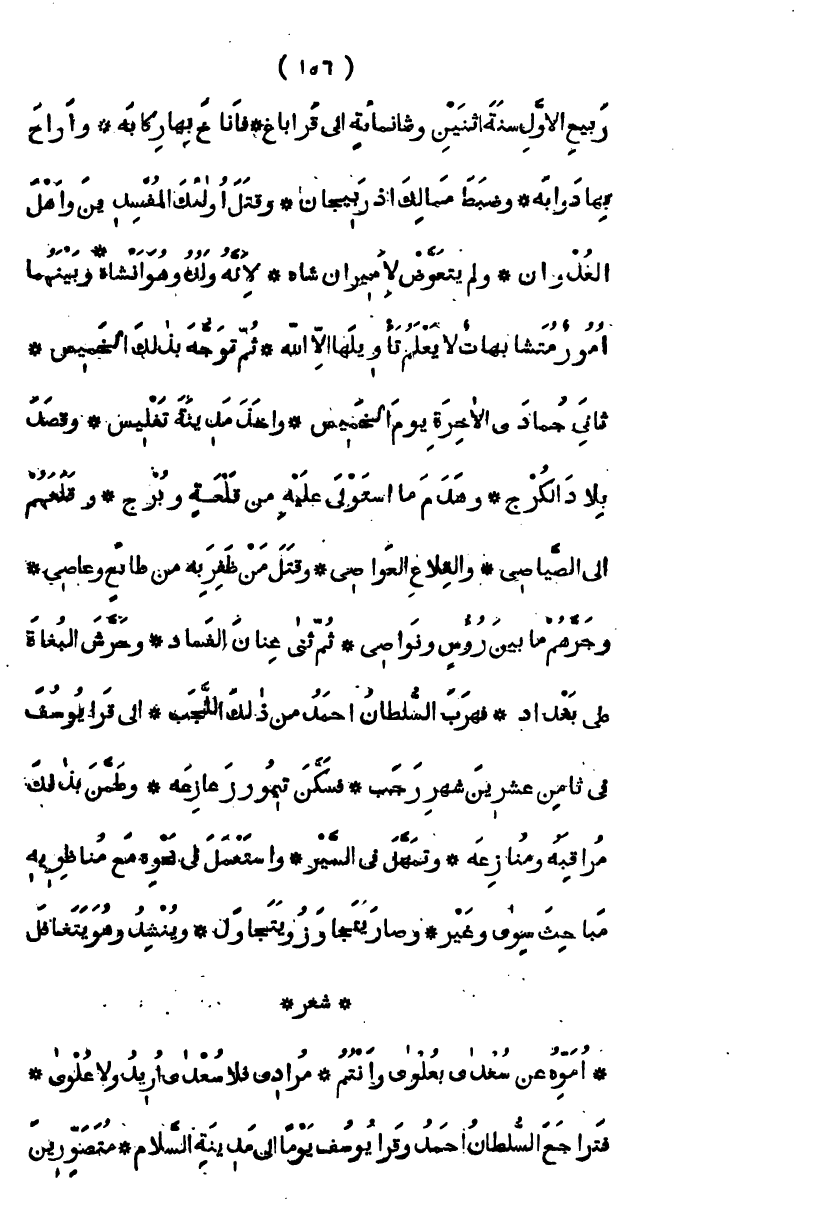 ( ١٥٦ )
رَبِيعِ الاوَّلِ سنَةَ اثنَيْنِ وثمانمائةٍ الى قَراباغ * فأناخَ بِها رِكابَه * وأَراحَ
بِها دَوابَّه * وضبَطَ مَمالِكَ اذرَبِيجان * وقتَلَ أُولئكَ المُفْسِدِينَ واهْلَ
العُدْوان * ولم يتعَرَّضْ لِأَمِيران شاه * لِأنَّهُ ولَدُهُ وهوَ انشَأَهُ * وبَيْنَهُما
أُمورٌ مُتَشابِهاتٌ لا يَعْلَمُ تَأْوِيلَها الّا اللّٰه * ثُمّ توَجَّهَ بذٰلكَ الخَمِيس *
ثانِيَ جُمادَى الاٰخِرَةِ يومَ الخَمِيس * واخَذَ مَدِينَةَ تَفْلِيس * وقصَدَ
بِلادَ الكُرْج * وهَدَمَ ما استَوْلَى علَيْهِ من قَلْعَةٍ وبُرْج * وقَلَعَهُمْ
الى الصَّياصِى * والقِلاعِ العَواصِى * وقتَلَ مَنْ ظَفِرَ بِه من طائعٍ وعاصِى *
وجَرَّهُمْ ما بينَ رُؤُسٍ ونَواصِى * ثُمّ ثَنَى عِنانَ الفَساد * وحَرَّشَ البُغاةَ
على بَغْداد * فهَرَبَ السُّلطانُ احمَدُ من ذٰلكَ اللَّجَب * الى قَرا يُوسُفَ
فى ثامِنِ عشرِينَ شهرِ رَجَب * فسَكَّنَ تِيمُورُ زَعازِعَه * وطَمَّنَ بذٰلكَ
مُراقِبَهُ ومُنازِعَه * وتمَهَّلَ فى السَّيْر * واستَعْمَلَ فى نَحْوِه مَعَ مُناظِرِيهِ
مَباحِثَ سِوٰى وغَيْر * وصارَ يَتَجاوَزُ ويَتَجاوَل * ويُنْشِدُ وهُوَ يَتَغافَل
* شعر *
* أُمَوِّهُ عن سُعْدٰى بعُلْوٰى وأَنْتُمُ * مُرادِى فلا سُعْدٰى أُرِيدُ ولا عُلْوٰى *
فتَراجَعَ السُّلطانُ احمَدُ وقَرا يُوسُف يَوْمًا الى مَدِينَةِ السَّلام * مُتَصَوِّرِينَ